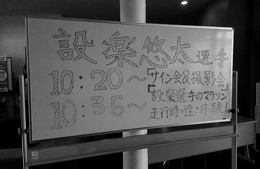 設楽悠太選手
10:20～「サイン会&撮影会」
10:35～「設楽選手のマラソン
走行時の速さ体験!」